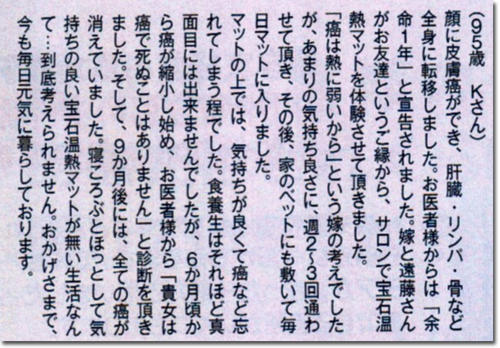 (95歳 Kさん)
顔に皮膚癌ができ、肝臓・リンパ・骨など
全身に転移しました。お医者様からは「余
命1年」と宣告されました。嫁と遠藤さん
がお友達というご縁から、サロンで宝石温
熱マットを体験させて頂きました。
「癌は熱に弱いから」という嫁の考えでした
が、あまりの気持ち良さに、週2〜3回通わ
せて頂き、その後、家のベットにも敷いて毎
日マットに入りました。
マットの上では、気持ちが良くて癌など忘
れてしまう程でした。食養生はそれほど真
面目には出来ませんでしたが、6か月頃か
ら癌が縮小し始め、お医者様から「貴女は
癌で死ぬことはありません」と診断を頂き
ました。そして、9か月後には、全ての癌が
消えていました。寝ころぶとほっとして気
持ちの良い宝石温熱マットが無い生活なん
て…到底考えられません。おかげさまで、
今も毎日元気に暮らしております。